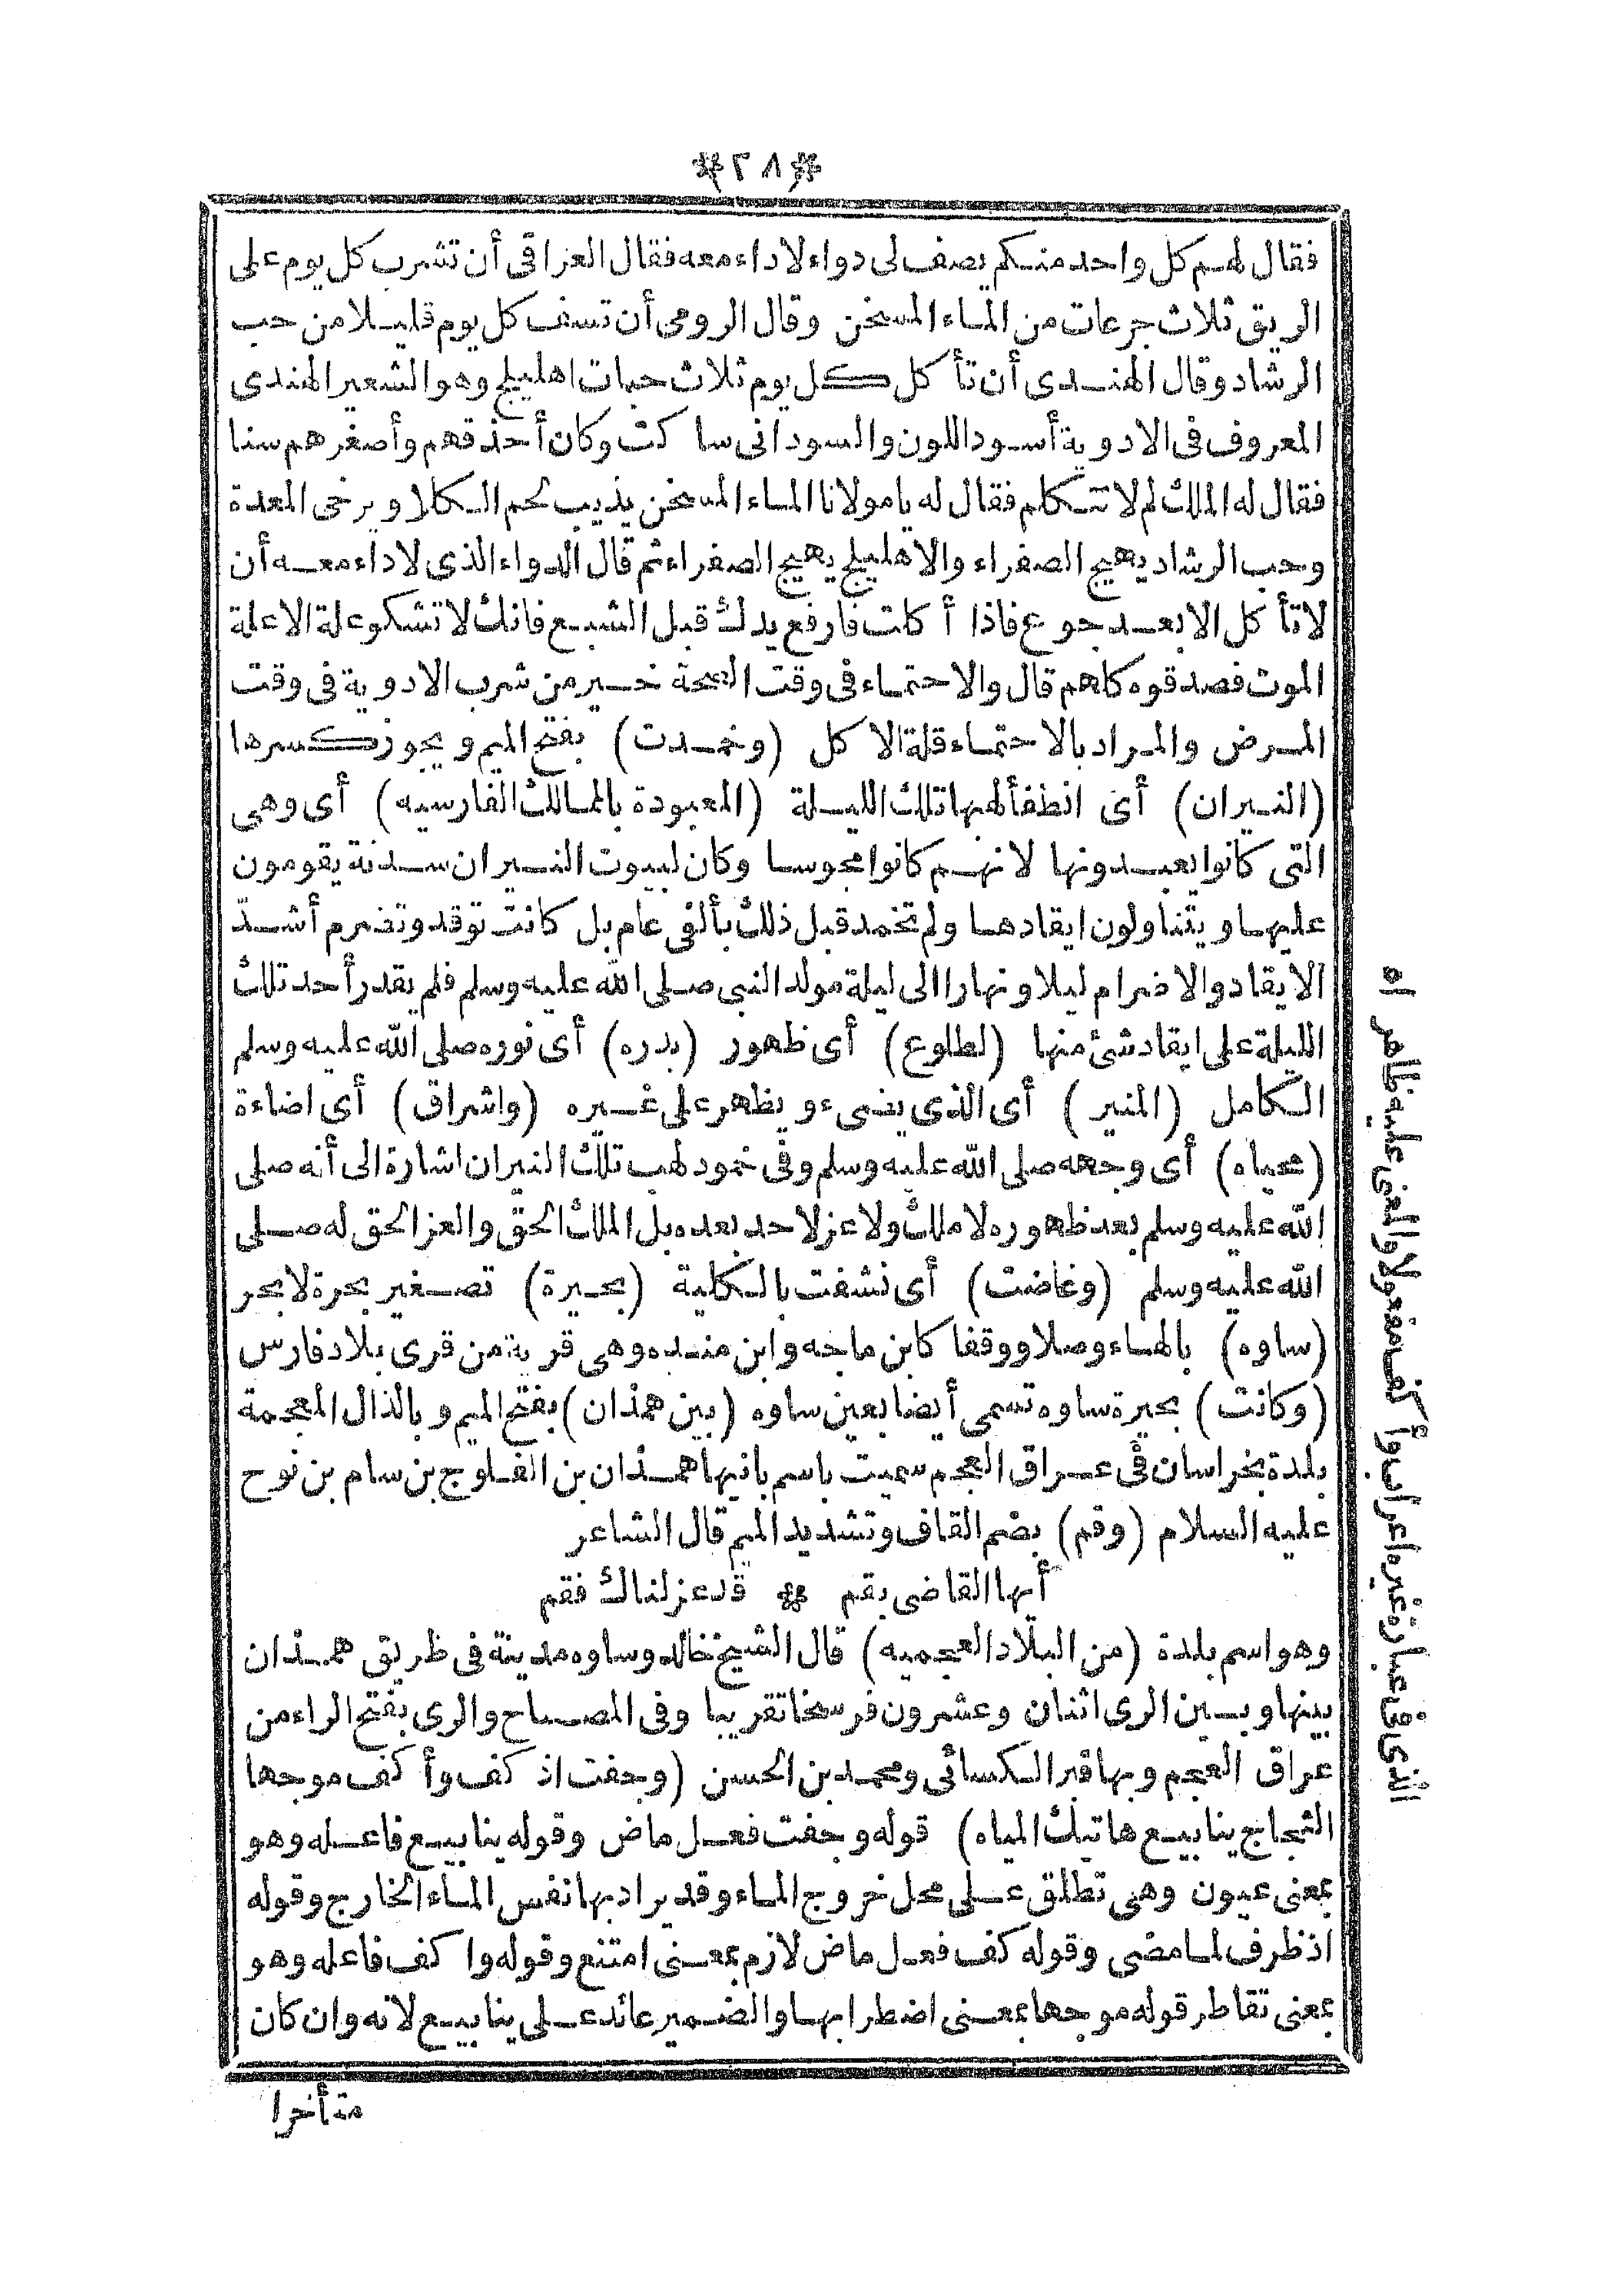 *٢٨*
فقال لهم كل واحد منكم يصف لى دواء لاداء معه فقال العراقى أن تشرب كل يوم على
الريق ثلاث جرعات من الماء المسخن وقال الرومى أن تسف كل يوم قليلا من حب
الرشاد وقال الهندى أن تأكل كل يوم ثلاث حبات اهليلج وهو الشعير الهندى
المعروف فى الادوية أسود اللون والسودانى ساكت وكان أحذقهم وأصغرهم سنا
فقال له الملك لم لا تتكلم فقال له يا مولانا الماء المسخن يذيب لحم الكلا ويرخى المعدة
وحب الرشاد يهيج الصفراء والاهليلج يهيج الصفراء ثم قال الدواء الذى لاداء معه أن
لا تأكل الا بعد جوع فاذا أكلت فارفع يدك قبل الشبع فانك لا تشكو علة الا علة
الموت فصدقوه كلهم قال والاحتماء فى وقت الصحة خير من شرب الادوية فى وقت
المرض والمراد بالاحتماء قلة الاكل (وخمدت) بفتح الميم ويجوز كسرها
(النيران) أى انطفأ لهبها تلك الليلة (المعبودة بالممالك الفارسيه) أى وهى
التى كانوا يعبدونها لانهم كانوا مجوسا وكان لبيوت النيران سدنة يقومون
عليها ويتناولون ايقادها ولم تخمد قبل ذلك بألفى عام بل كانت توقد وتضرم أشدّ
الايقاد والاضرام ليلا ونهارا الى ليلة مولد النبى صلى الله عليه وسلم فلم يقدر أحد تلك
الليلة على ايقاد شئ منها (لطلوع) أى ظهور (بدره) أى نوره صلى الله عليه وسلم
الكامل (المنير) أى الذى يضىء ويظهر على غيره (واشراق) أى اضاءة
(محياه) أى وجهه صلى الله عليه وسلم وفى خمود لهب تلك النيران اشارة الى أنه صلى
الله عليه وسلم بعد ظهوره لا ملك ولا عز لاحد بعده بل الملك الحق والعز الحق له صلى
الله عليه وسلم (وغاضت) أى نشفت بالكلية (بحيرة) تصغير بحرة لا بحر
(ساوه) بالهاء وصلا ووقفا كابن ماجه وابن منده وهى قرية من قرى بلاد فارس
(وكانت) بحيرة ساوه تسمى أيضا بعين ساوه (بين همذان) بفتح الميم وبالذال المعجمة
بلدة بخراسان فى عراق العجم سميت باسم بانيها همذان بن الفلوج بن سام بن نوح
عليه السلام (وقم) بضم القاف وتشديد الميم قال الشاعر
أيها القاضى بقم * قد عزلناك فقم
وهو اسم بلدة (من البلاد العجميه) قال الشيخ خالد وساوه مدينة فى طريق همذان
بينها وبين الرى اثنان وعشرون فرسخا تقريبا وفى المصباح والرى بفتح الراء من
عراق العجم وبها قبر الكسائى ومحمد بن الحسن (وجفت اذ كف وأكف موجها
الثجاج ينابيع هاتيك المياه) قوله وجفت فعل ماض وقوله ينابيع فاعله وهو
بمعنى عيون وهى تطلق على محل خروج الماء وقد يراد بها نفس الماء الخارج وقوله
اذ ظرف لما مضى وقوله كف فعل ماض لازم بمعنى امتنع وقوله واكف فاعله وهو
بمعنى تقاطر قوله موجها بمعنى اضطرابها والضمير عائد على ينابيع لانه وان كان
متأخرا
الذى فى عبارة غيره اعراب وأكف مفعولا والمعنى عليه ظاهر اه